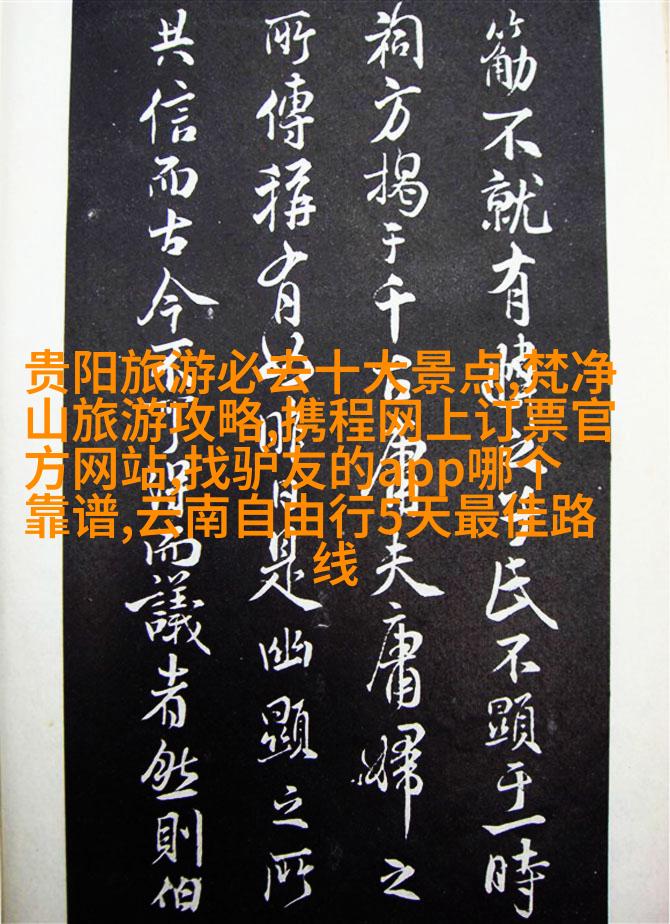 不就有之氏不顯于一時
祠方揭于千古庸夫庸婦之
所傳稱有是幽顯之所
共信而古今不可得而議者然則伯
贵阳旅游必去十大景点,梵净
山旅游攻略,携程网上订票官
方网站,找驴友的app哪个
靠谱,云南自由行5天最佳路
线